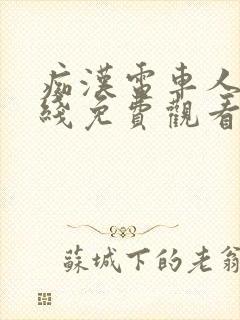 痴漢電車人
綫免費觀看
蘇城下的老翁